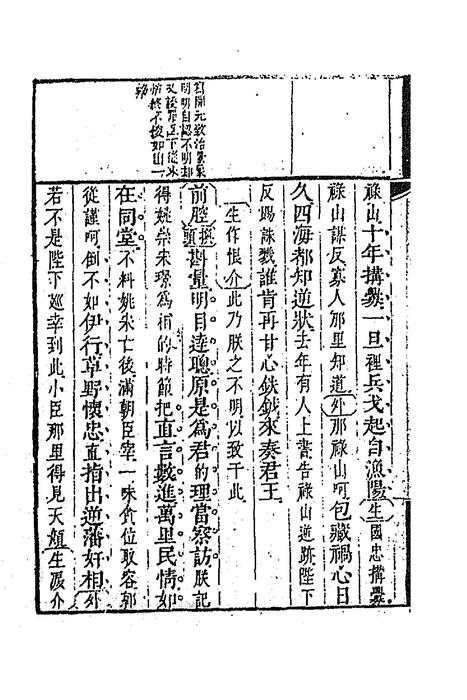 祿山十年搆釁一旦裡兵戈起自漁陽生國忠搆釁
祿山謀反寡人那里知道外那祿山呵包藏禍心日
久四海都知逆狀去年有人上書告祿山逆跡陛下
反賜誅戮誰肯再甘心鈇鉞來奏君王
生作恨介此乃朕之不明以致于此
前腔換頭斟量明目達聰原是爲君的理當察訪朕記
得姚崇宋璟爲相的時節把直言數進萬里民情如
在同堂不料姚宋亡後滿朝臣宰一味貪位取容郭
從謹呵倒不如伊行草野懷忠直指出逆藩奸相外
若不是陛下巡幸到此小臣那里得見天顏生淚介
開元致治
明明自認不明却